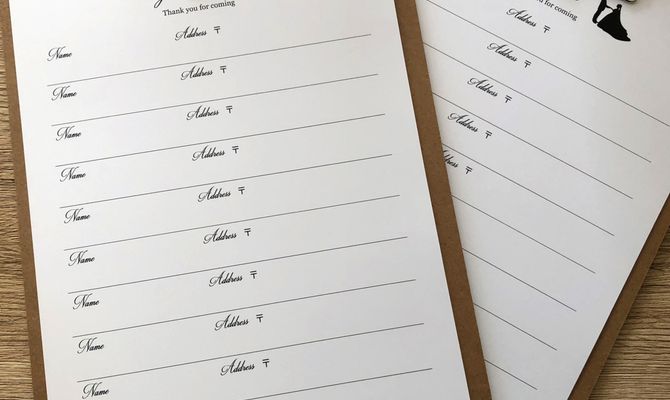 Thank you for coming
Address 〒
Name
Address 〒
Name
Address 〒
Name
Address 〒
Name
Address 〒
Name
Address 〒
Name
Address 〒
Name
Address 〒
Name
Address 〒
Name
for coming
Address 〒
Address 〒
Address 〒
Address 〒
Address 〒